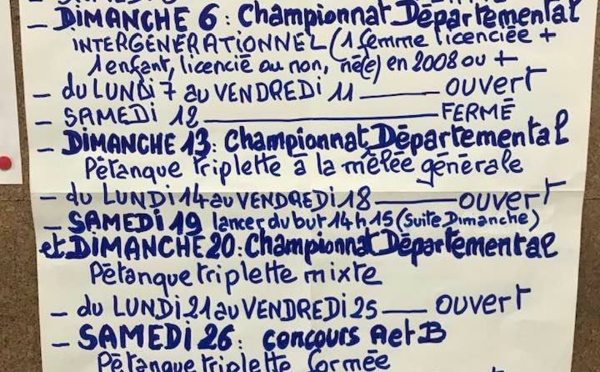 - DIMANCHE 6 : Championnat Départemental
INTERGÉNÉRATIONNEL (1 femme licenciée +
1 enfant, licencié ou non, né(e) en 2008 ou +
- du LUNDI 7 au VENDREDI 11 — ouvert
- SAMEDI 12 — FERMÉ
- DIMANCHE 13 : Championnat Départemental
Pétanque triplette à la mêlée générale
- du LUNDI 14 au VENDREDI 18 — ouvert
- SAMEDI 19 lancer du but 14h15 (suite Dimanche)
et DIMANCHE 20 : Championnat Départemental
Pétanque triplette mixte
- du LUNDI 21 au VENDREDI 25 — ouvert
- SAMEDI 26 : concours A et B
Pétanque triplette formée